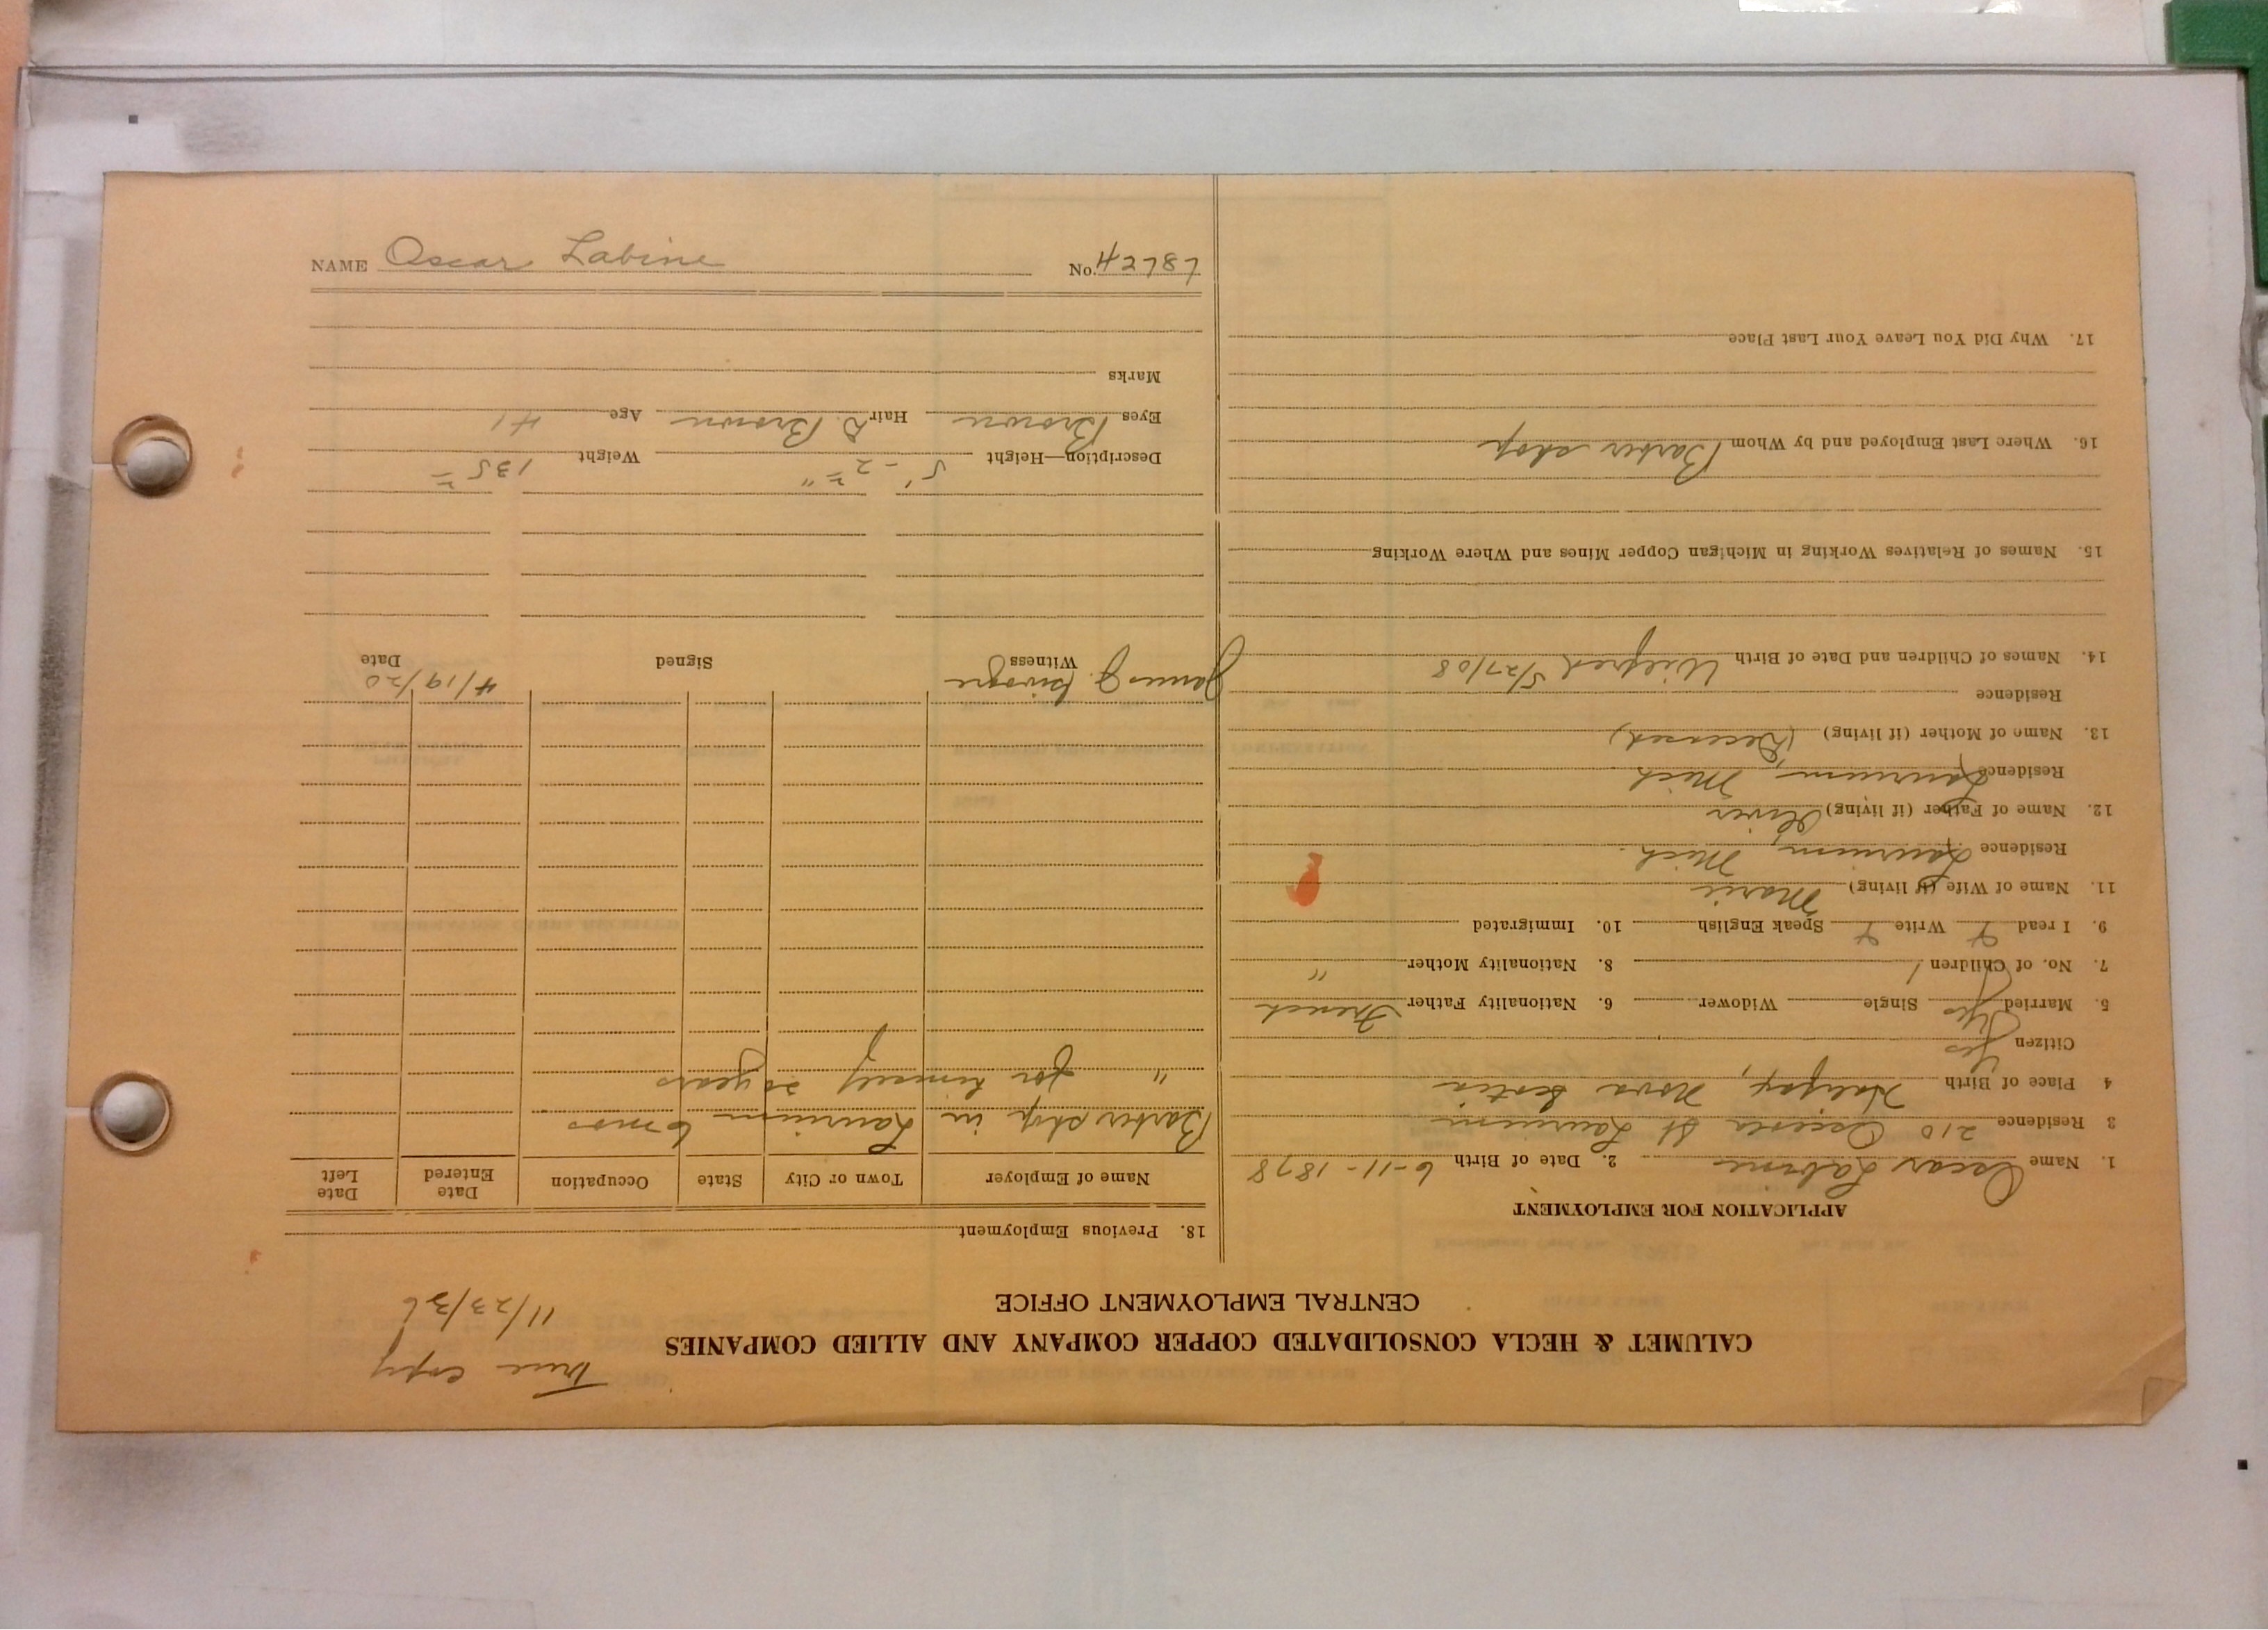 True copy
11/23/36
CALUMET & HECLA CONSOLIDATED COPPER COMPANY AND ALLIED COMPANIES
CENTRAL EMPLOYMENT OFFICE
APPLICATION FOR EMPLOYMENT
1. Name Oscar Labine 2. Date of Birth 6-11-1878
3 Residence 210 Osceola St Laurium
4 Place of Birth Halifax, Nova Scotia
Citizen Yes
5. Married Yes Single Widower 6. Nationality Father French
7. No. of Children 1 8. Nationality Mother "
9. I read Write Speak English 10. Immigrated
11. Name of Wife (if living) Marie
Residence Laurium, Mich.
12. Name of Father (if living) Oliver
Residence Laurium, Mich
13. Name of Mother (if living) (Deceased)
Residence
14. Names of Children and Date of Birth Wilfred 5/27/08
15. Names of Relatives Working in Michigan Copper Mines and Where Working
16. Where Last Employed and by Whom Barber shop
17. Why Did You Leave Your Last Place
18. Previous Employment
Name of Employer Town or City State Occupation Date Entered Date Left
Barber shop in Laurium 6 mos
" for himself 20 years
James J. 4/19/20
Witness Signed Date
Description—Height 5' - 2" Weight 135
Eyes Brown Hair D. Brown Age 41
Marks
NAME Oscar Labine No. 42787